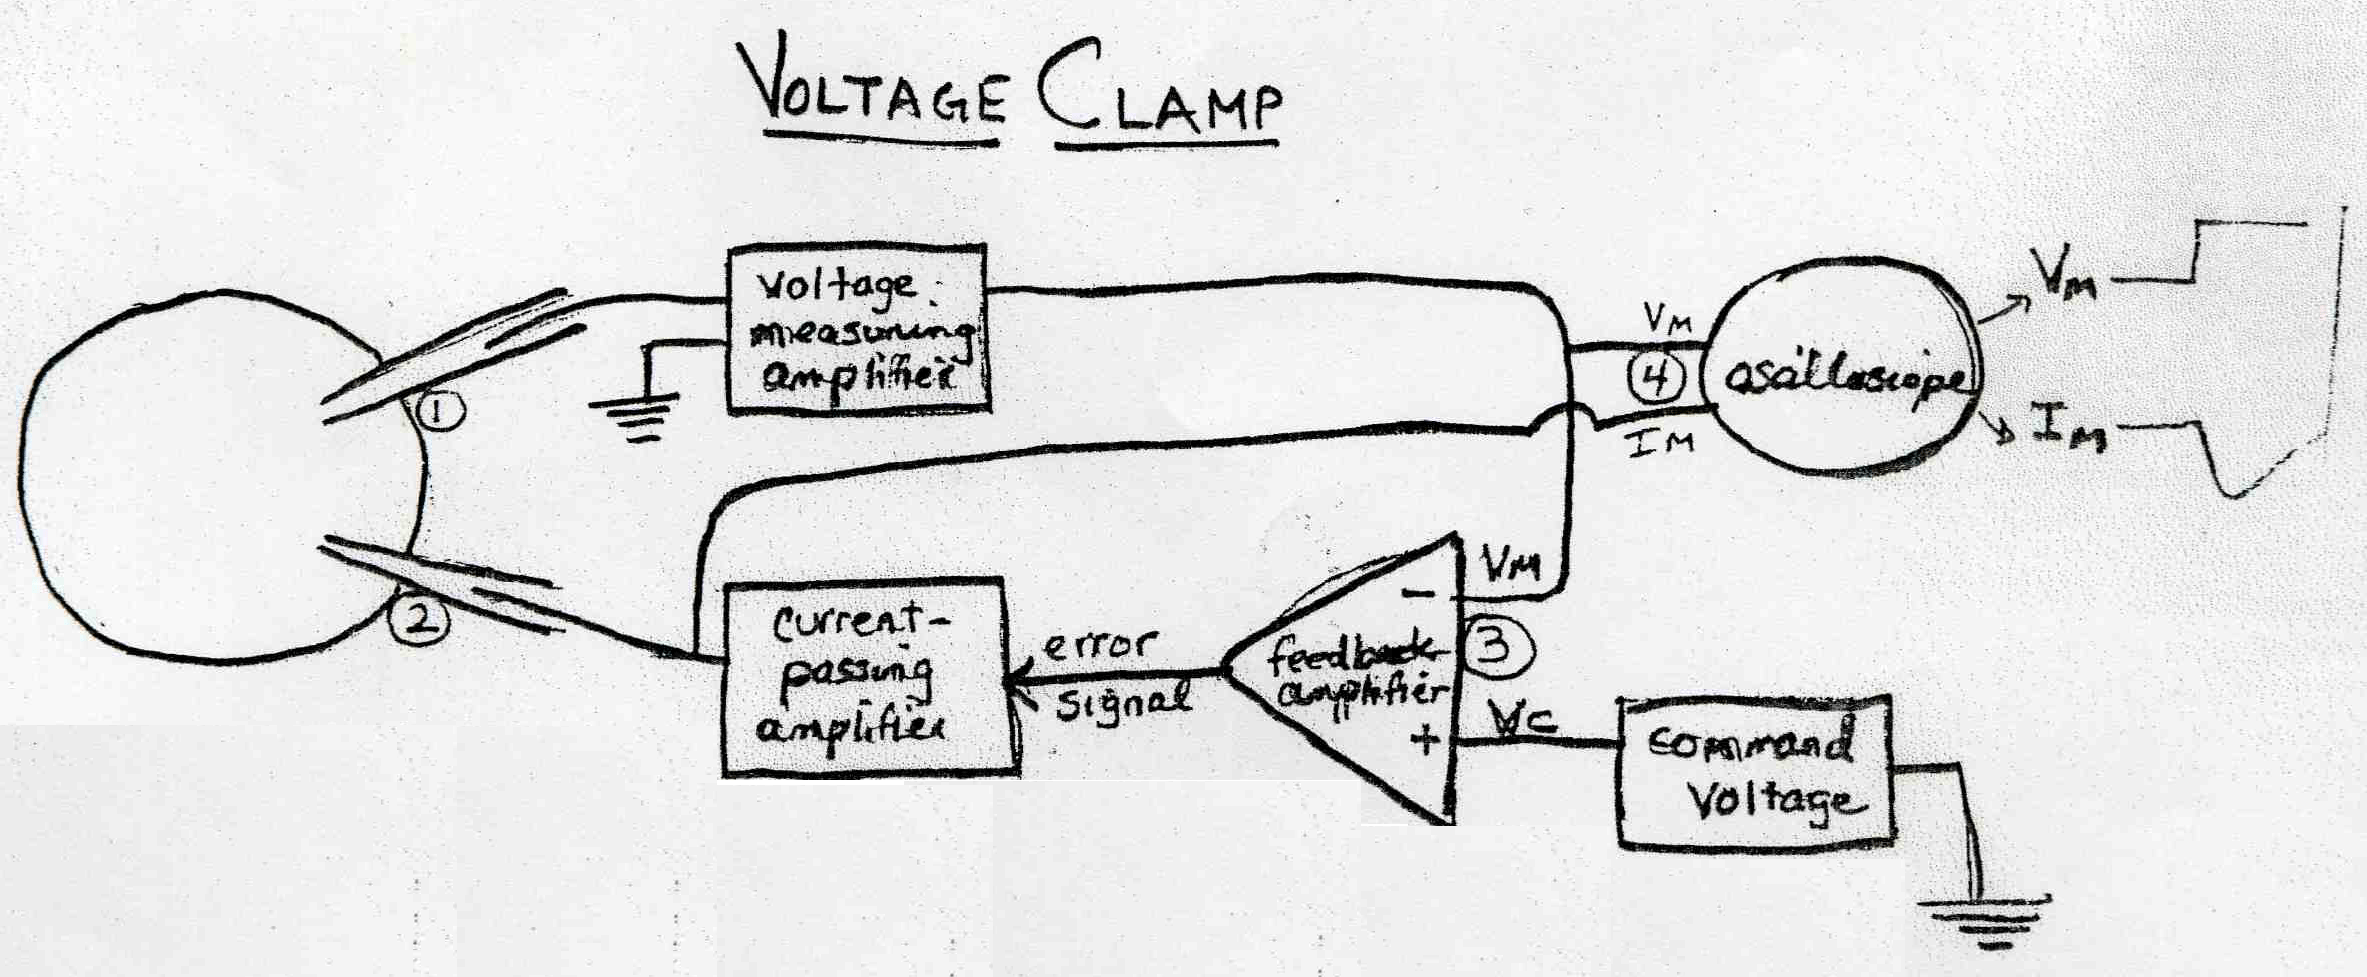 VOLTAGE CLAMP
voltage
measuring
amplifier
1
VM
4
oscilloscope
IM
VM
IM
2
current-
passing
amplifier
error
signal
-
feedback
amplifier
+
VM
3
Vc
command
voltage